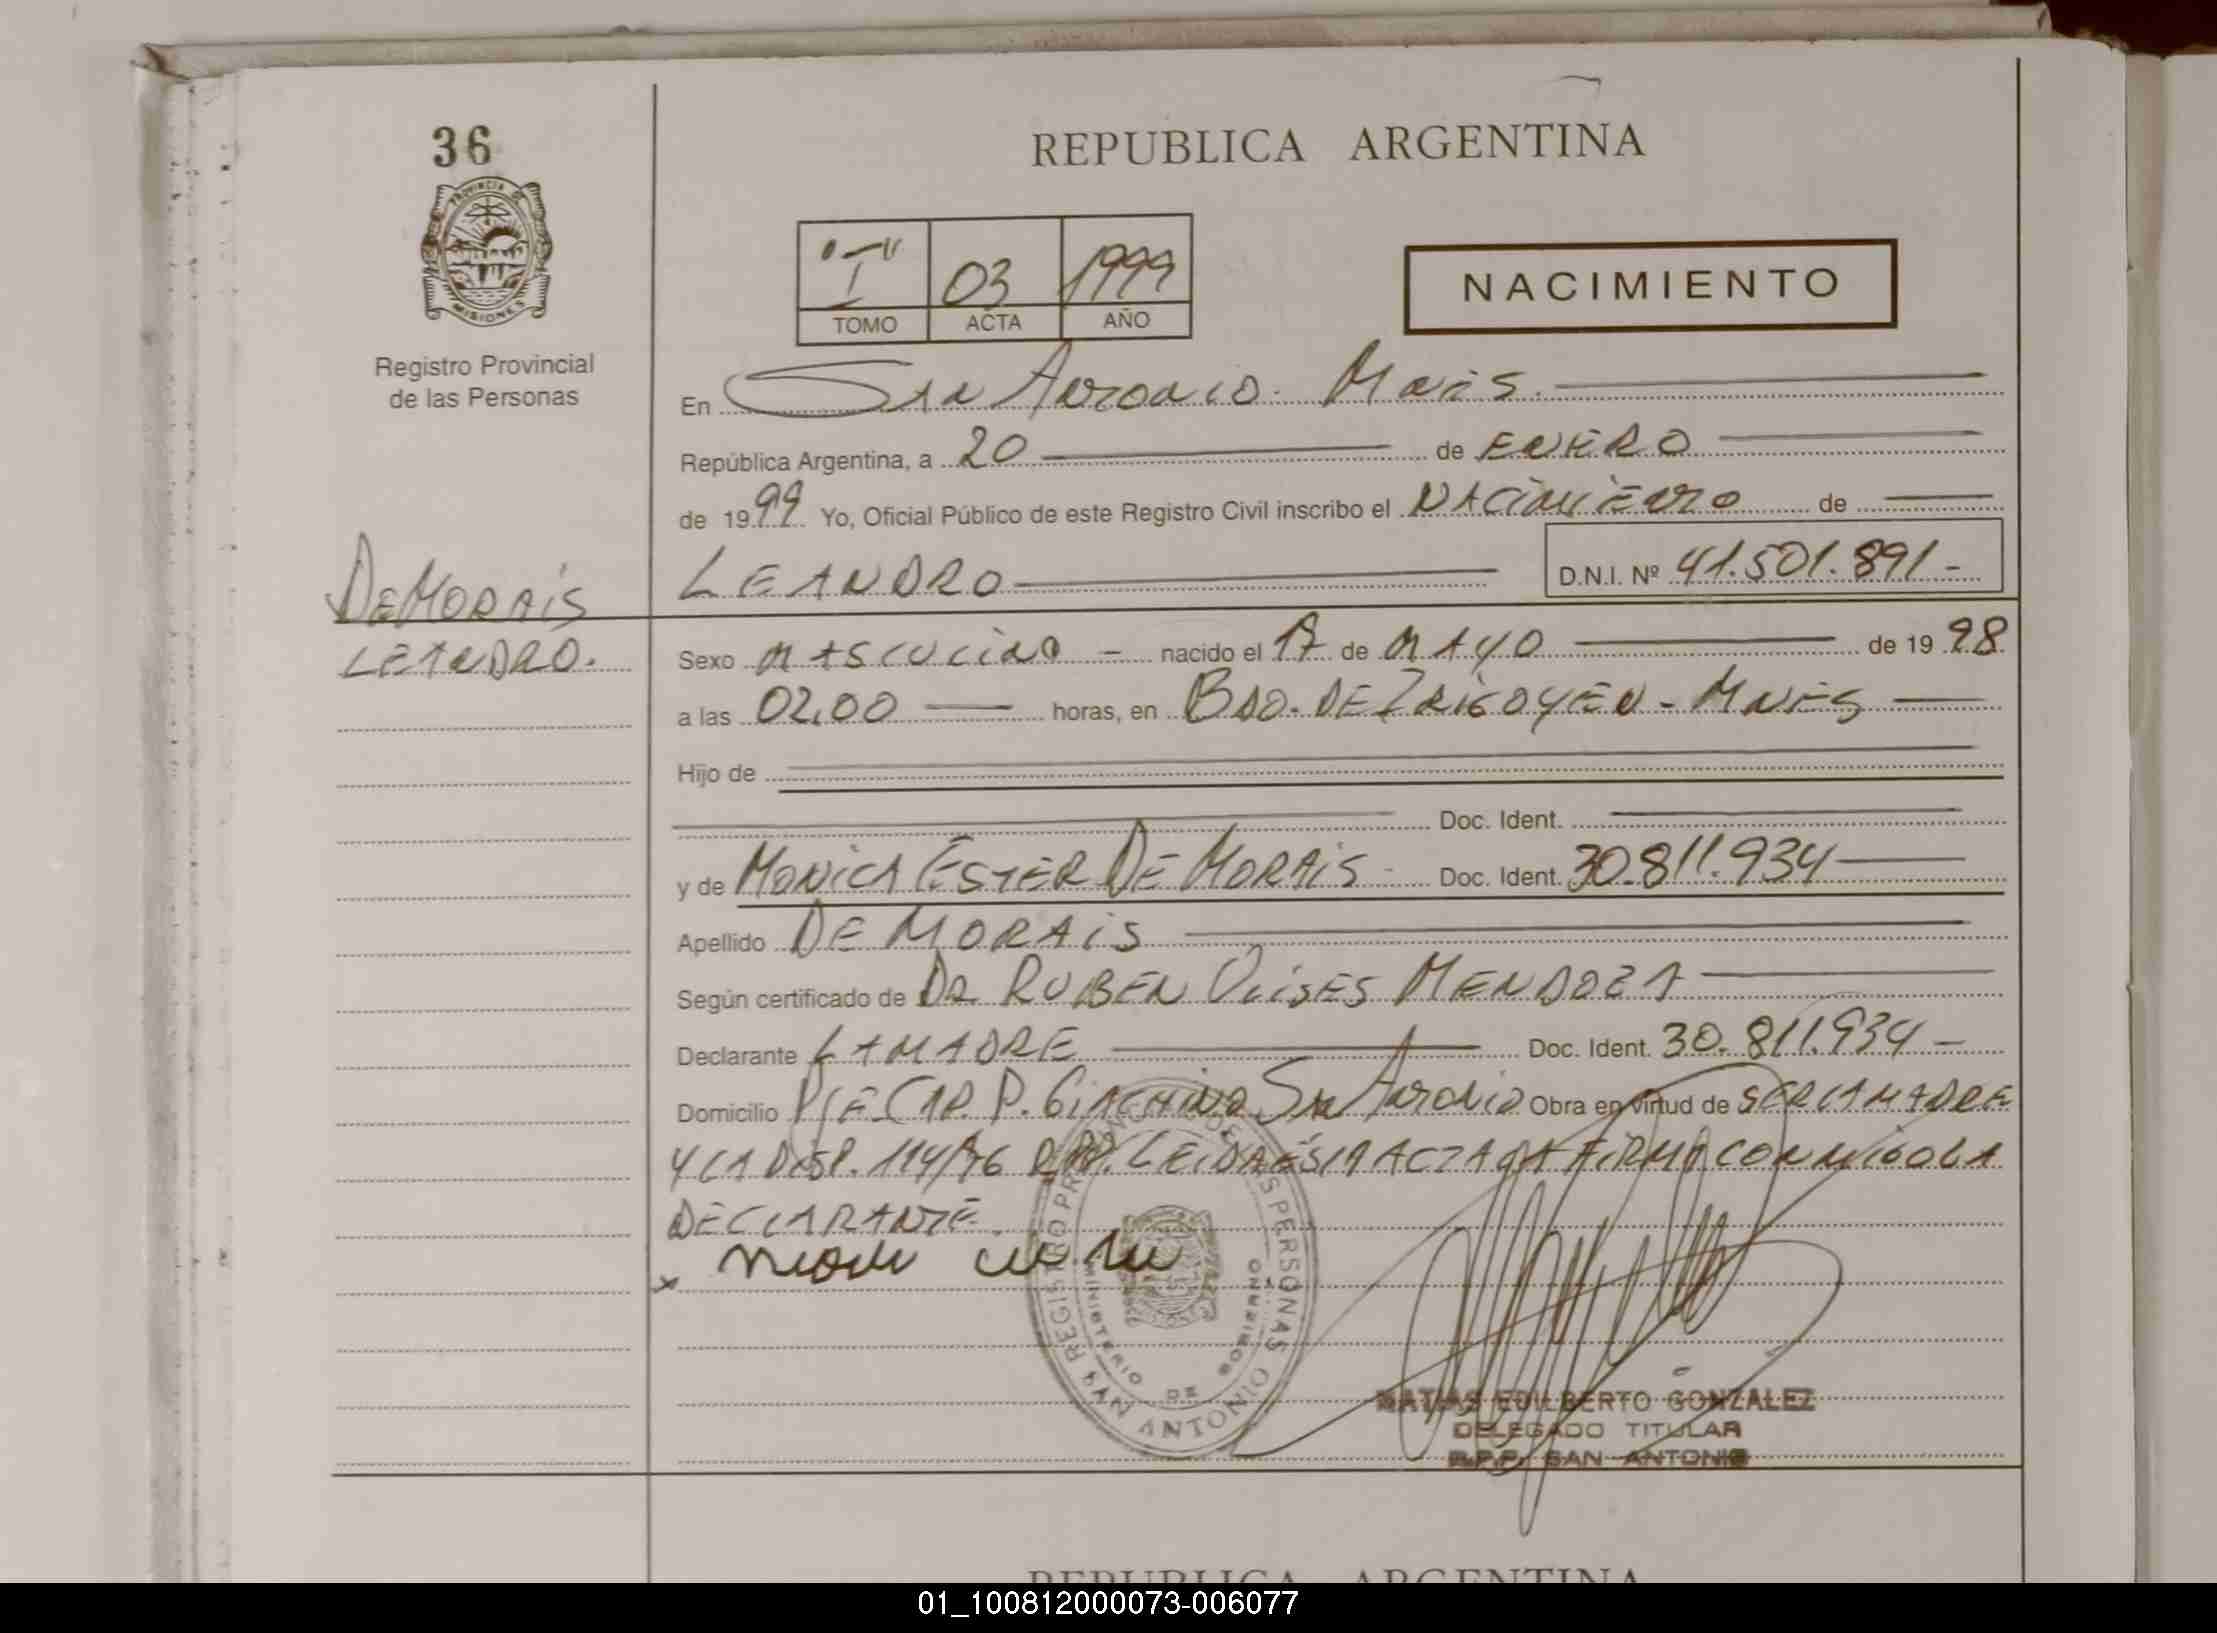 36
PROVINCIA DE
MISIONES
Registro Provincial
de las Personas
REPUBLICA ARGENTINA
"I" 03 1999
TOMO ACTA AÑO
NACIMIENTO
En San Antonio. Mnes.
República Argentina, a 20 de ENERO
de 1999 Yo, Oficial Público de este Registro Civil inscribo el NACIMIENTO de
LEANDRO D.N.I. Nº 41.501.891-
DE MORAIS
LEANDRO.
Sexo MASCULINO - nacido el 17 de MAYO de 1998
a las 02,00 horas, en BDO. DE IRIGOYEN - MNES
Hijo de
Doc. Ident.
y de MONICA ESTER DE MORAIS - Doc. Ident. 30.811.934
Apellido DE MORAIS
Según certificado de DR. RUBEN ULISES MENDOZA
Declarante LA MADRE Doc. Ident. 30.811.934-
Domicilio PJE CAP. P. GIACHINO, San Antonio Obra en virtud de SER LA MADRE
Y LA DISP. 114/96 RPP. LEIDA ESTA ACTA LA FIRMA CONMIGO LA
DECLARANTE.
x
REGISTRO PROVINCIAL DE LAS PERSONAS
MINISTERIO DE GOBIERNO
SAN ANTONIO
MATIAS EDILBERTO GONZALEZ
DELEGADO TITULAR
R.P.P. SAN ANTONIO
REPUBLICA ARGENTINA
01_100812000073-006077